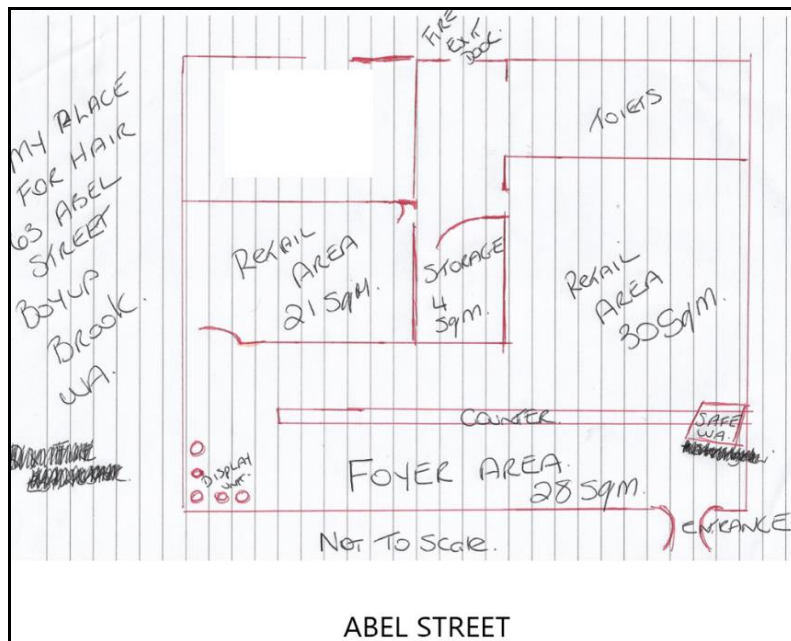 MY PLACE
FOR HAIR
63 ABEL
STREET
BOYUP
BROOK.
WA.
FIRE
EXIT
DOOR.
TOIETS
RETAIL
AREA
21 SqM.
STORAGE
4
SqM.
RETAIL
AREA
30 SqM.
COUNTER.
SAFE
WA.
DISPLAY
UNIT.
FOYER AREA.
28 SqM.
ENTRANCE
NOT TO SCALE.
ABEL STREET